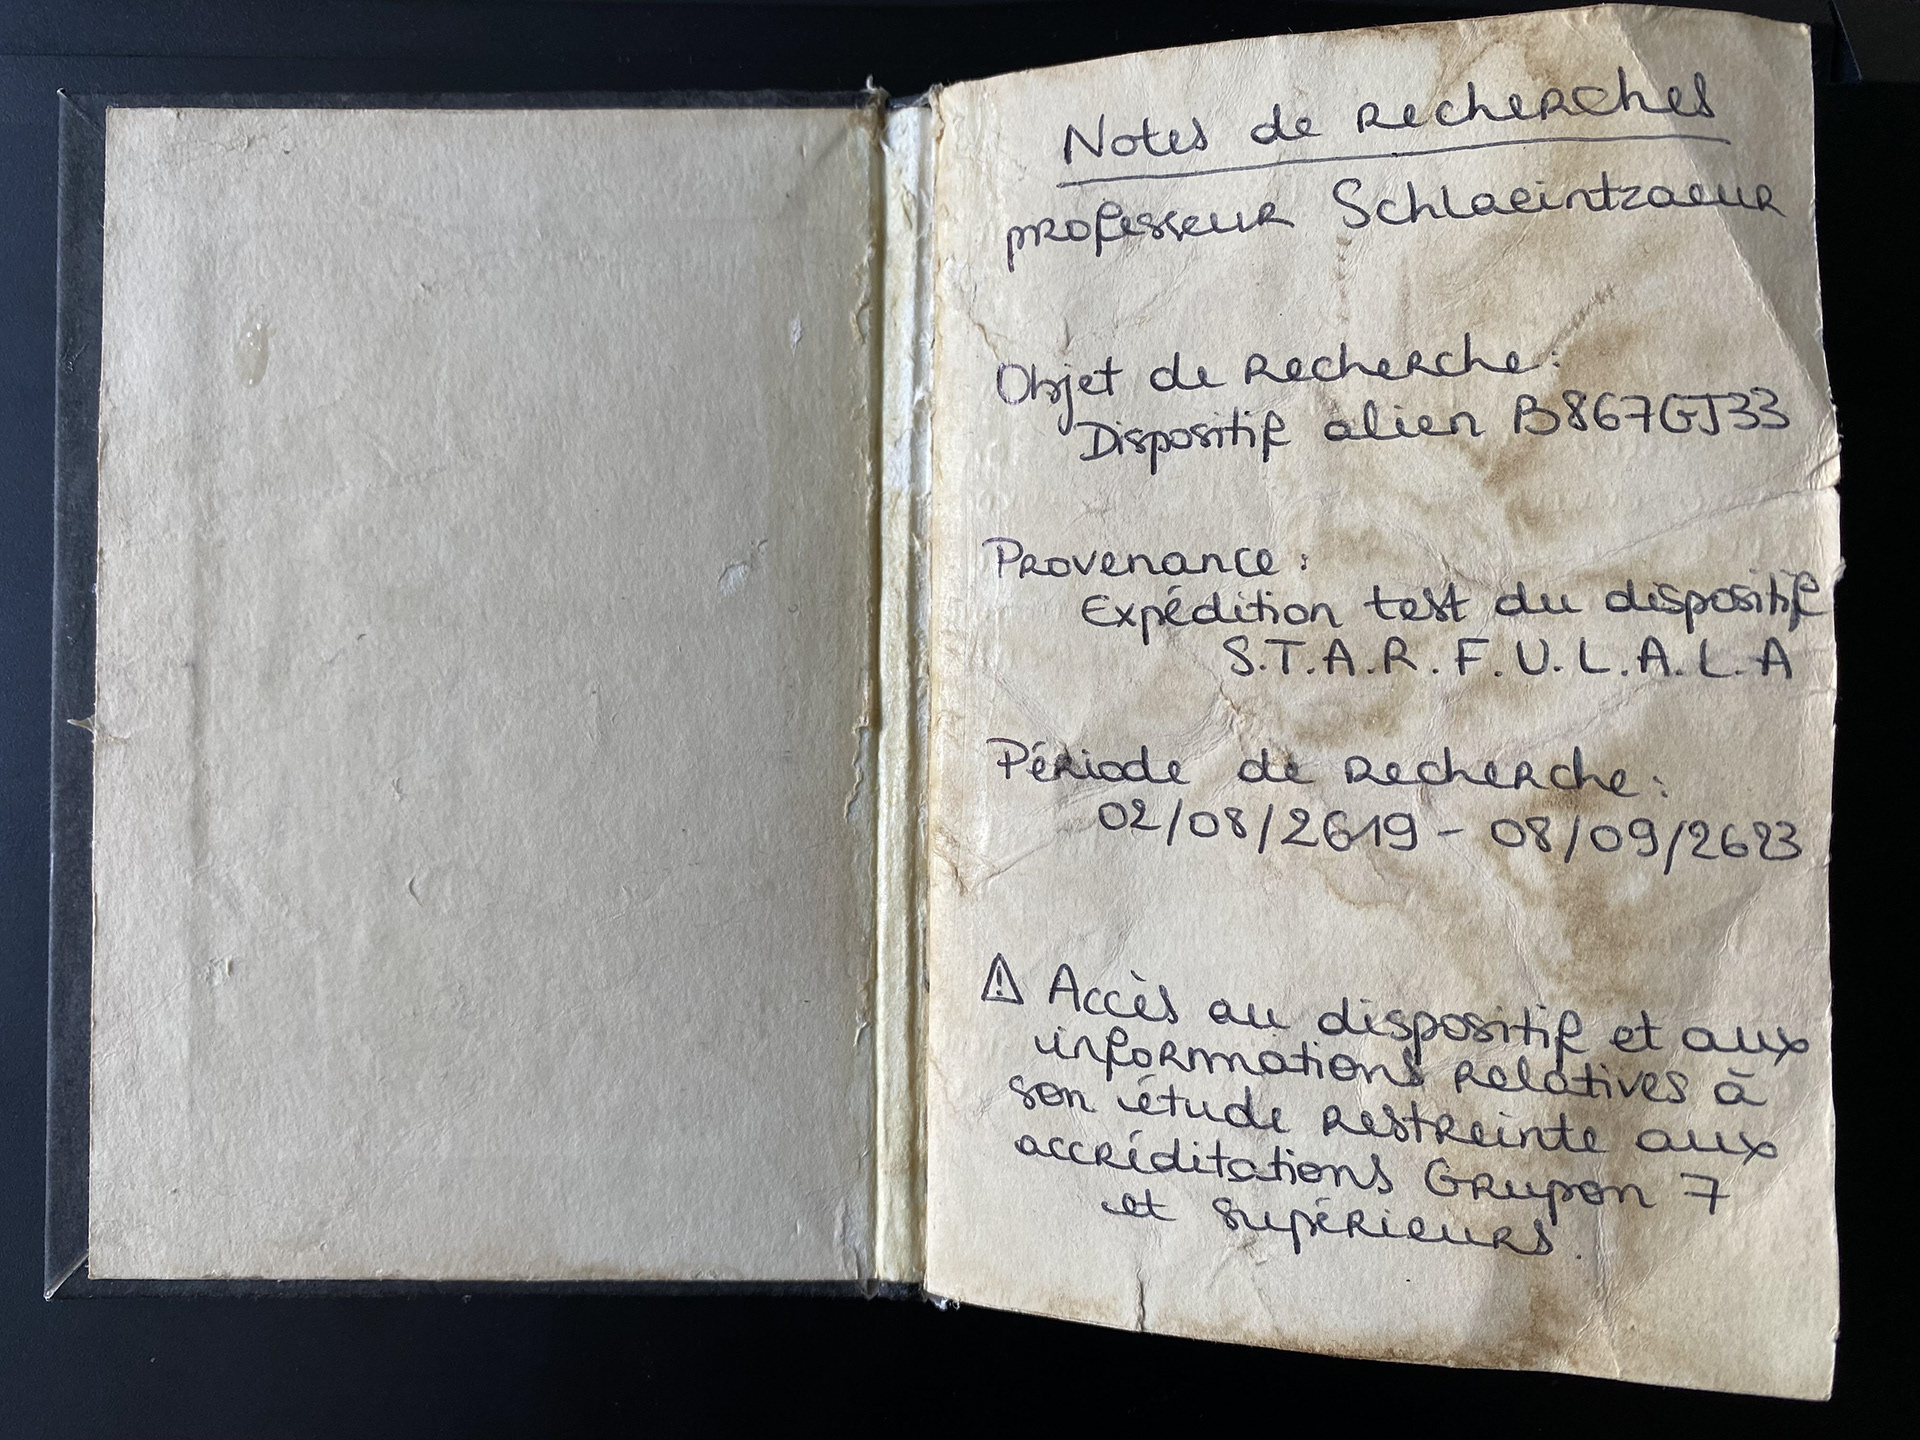 Notes de recherches
professeur Schlaeintzaeur
Objet de recherche :
Dispositif alien B867GJ33
Provenance :
Expédition test du dispositif
S.T.A.R.F.U.L.A.L.A
Période de recherche :
02/08/2619 - 08/09/2623
⚠ Accès au dispositif et aux
informations relatives à
son étude restreinte aux
accréditations Grupon 7
et supérieurs.